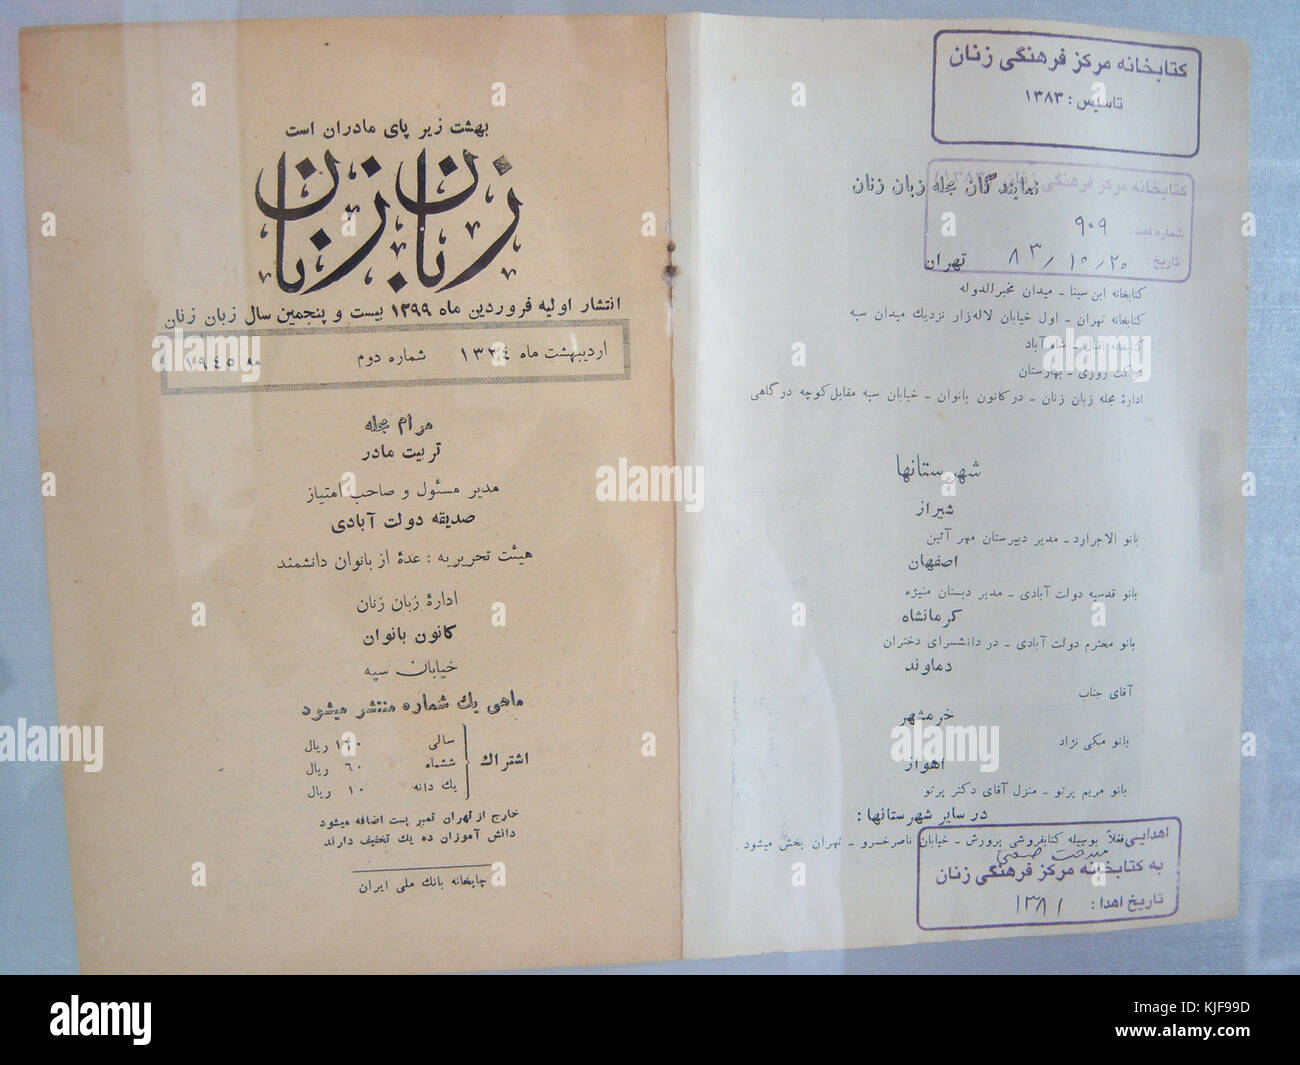 بهشت زیر پای مادران است
زبان زنان
انتشار اولیه فروردین ماه ۱۲۹۹ بیست و پنجمین سال زبان زنان
اردیبهشت ماه ۱۳۲٤ شماره دوم ۱۹٤٥
مرام مجله
تربیت مادر
مدیر مسئول و صاحب امتیاز
صدیقه دولت آبادی
هیئت تحریریه : عدهٔ از بانوان دانشمند
ادارهٔ زبان زنان
کانون بانوان
خیابان سپه
ماهی یك شماره منتشر میشود
اشتراك
سالی ۱۲۰ ریال
ششماه ٦۰ ریال
یك دانه ۱۰ ریال
خارج از تهران تمبر پست اضافه میشود
دانش آموزان ده یك تخفیف دارند
چاپخانه بانك ملی ایران
کتابخانه مرکز فرهنگی زنان
تاسیس : ۱۳۸۳
کتابخانه مرکز فرهنگی زنان (۱۳۸۳)
نمایندگان مجله زبان زنان
شماره ثبت : ۹۰۹
تاریخ : ۸۳/۱۰/۲۰
تهران
کتابخانه ابن سینا - میدان مخبرالدوله
کتابخانه تهران - اول خیابان لاله‌زار نزدیك میدان سپه
کتابخانه - شاه آباد
شرکت روزی - بهارستان
ادارهٔ مجله زبان زنان - در کانون بانوان - خیابان سپه مقابل کوچه درگاهی
شهرستانها
شیراز
بانو الاجراد - مدیر دبیرستان مهر آئین
اصفهان
بانو قدسیه دولت آبادی - مدیر دبستان منیژه
کرمانشاه
بانو محترم دولت آبادی - در دانشسرای دختران
دماوند
آقای جناب
خرمشهر
بانو مکی نژاد
اهواز
بانو مریم پرتو - منزل آقای دکتر پرتو
در سایر شهرستانها :
فعلاً بوسیله کتابفروشی پرورش - خیابان ناصرخسرو - تهران بخش میشود .
اهدایی
به کتابخانه مرکز فرهنگی زنان
تاریخ اهدا : ۱۳۸۱
alamy stock photo
alamy stock photo
alamy stock photo
alamy
Image ID: YJF99D
www.alamy.com